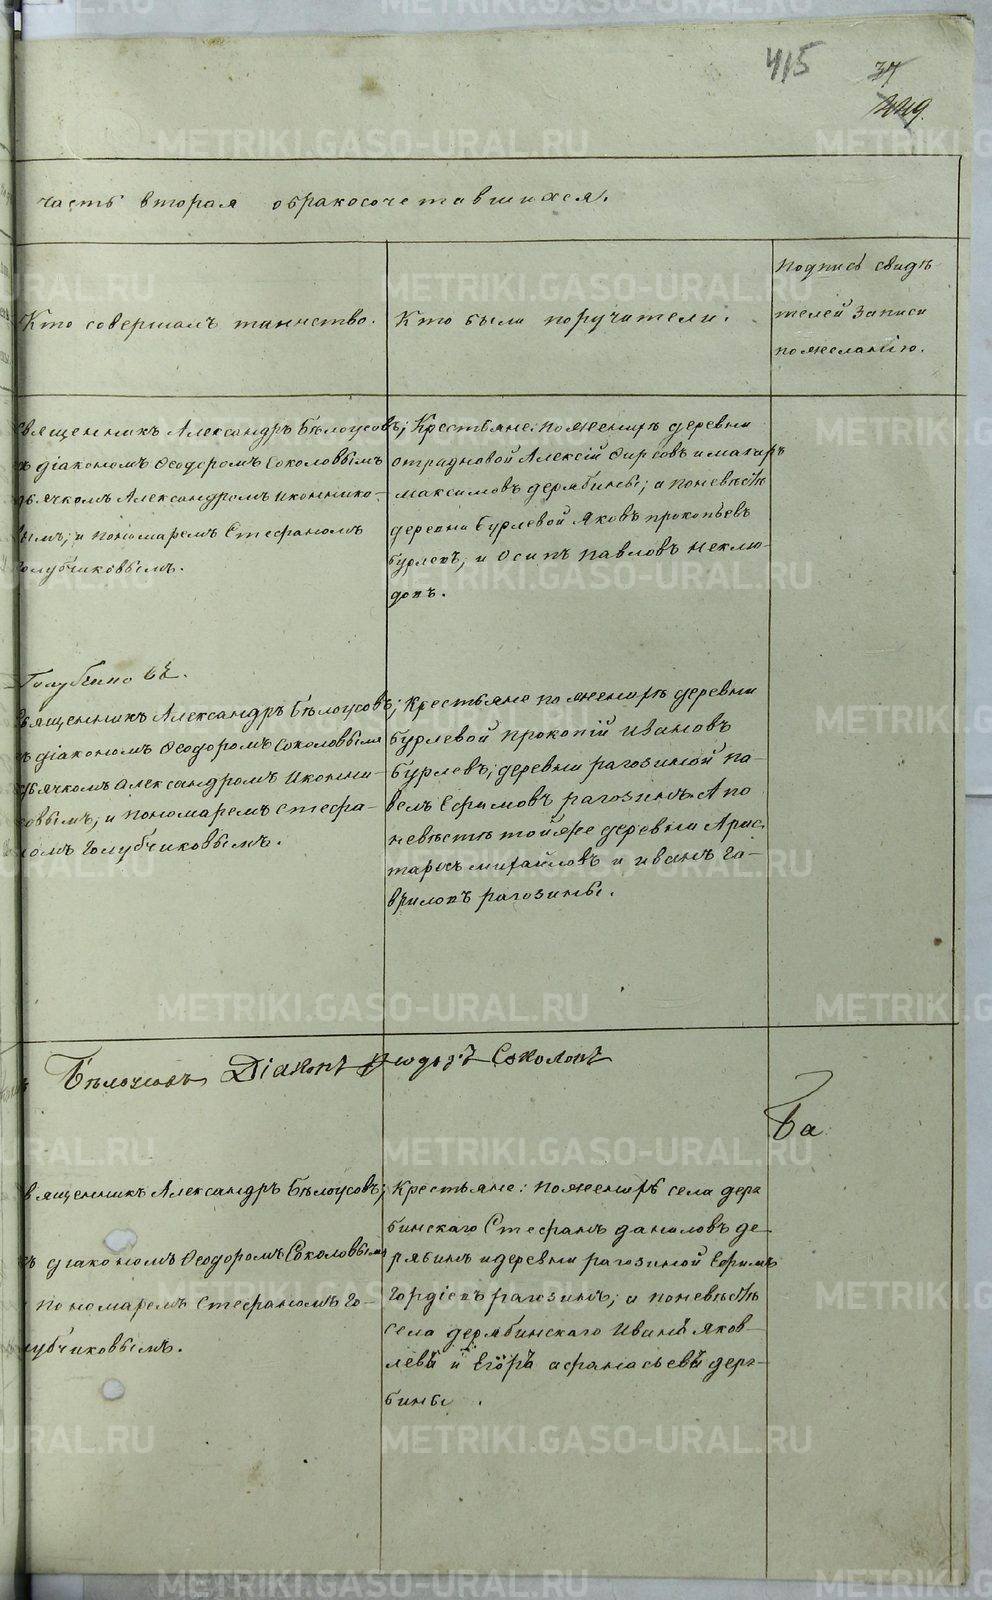 415
37
229.
часть вторая обракосочетавшихся.
Кто совершалъ таинство.
Кто были поручители.
Подпись свидѣ
телей записи
пожеланію.
священникъ Александръ Бѣлоусовъ;
съ діакономъ Ѳеодоромъ Соколовымъ
дьячкомъ Александромъ Иконнико-
вымъ; и пономаремъ Стефаномъ
Голубчиковымъ.
Крестьяне: по женихѣ деревни
отрадновой Алексій Фирсовъ и макаръ
максимовъ дерябины; а по невѣстѣ
деревни Бурлевой Яковъ прокопьевъ
бурлевъ; и Осипъ павловъ неклю-
довъ.
священникъ Александръ Бѣлоусовъ;
съ діакономъ Ѳеодоромъ Соколовымъ
дьячкомъ Александромъ Иконни-
ковымъ; и пономаремъ Стефа-
номъ Голубчиковымъ.
Крестьяне по женихѣ деревни
бурлевой прокопій Ивановъ
бурлевъ; деревни рагозиной па-
велъ Ефимовъ рагозинъ. А по
невѣстѣ той же деревни Арис-
тархъ михайловъ и иванъ га-
вриловъ рагозины.
Бѣлоусовъ Діаконъ Ѳеодоръ Соколовъ
Ба
священникъ Александръ Бѣлоусовъ;
съ діакономъ Ѳеодоромъ Соколовымъ
пономаремъ Стефаномъ Го-
лубчиковымъ.
Крестьяне: по женихѣ села деря-
бинскаго Стефанъ даниловъ де-
рябинъ и деревни рагозиной Ефимъ
Гордіевъ рагозинъ; а по невѣстѣ
села дерябинскаго Иванъ Яков-
левъ и Егоръ афанасьевъ деря-
бины.
METRIKI.GASO-URAL.RU